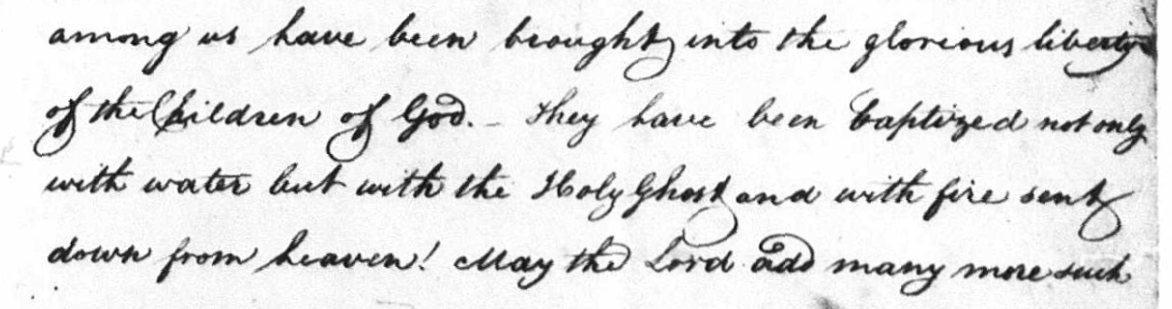 among us have been brought into the glorious liberty
of the Children of God. - They have been baptized not only
with water but with the Holy Ghost and with fire sent
down from heaven! May the Lord add many more such